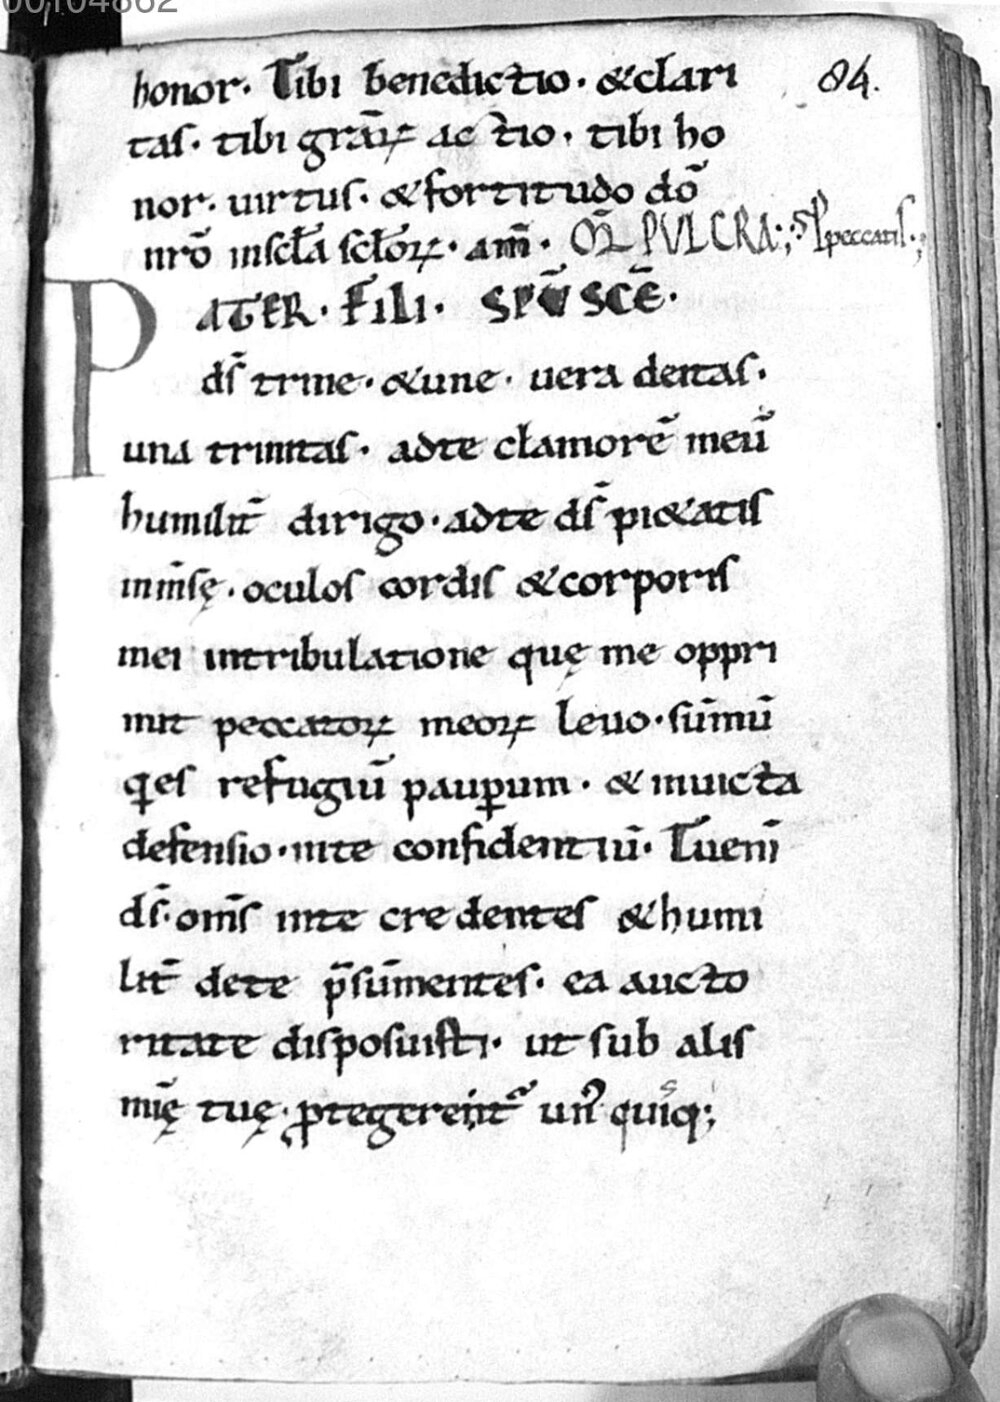 honor· Tibi benedictio· &clari 84.
tas· tibi grāꝝ actio· tibi ho
nor· uirtus· &fortitudo dō
nrō insc̄la sc̄loꝝ· am̄· OR̄ PULCRA; · S P peccatis·;
PATER· FILI· SPŪS SCĒ·
ds̄ trine· &une· uera deitas·
una trinitas· adte clamorē meū
humilit̄ dirigo· adte ds̄ pi&atis
inm̄sę· oculos cordis &corporis
mei intribulatione quę me oppri
mit peccatoꝝ meoꝝ leuo· sūmū
q̄ es refugiū pauꝑum· & inuicta
defensio· inte confidentiū· Tueni
ds̄· om̄s inte credentes &humi
lit̄ dete p̄sūmentes· ea aucto
ritate disposuisti· ut sub alis
mīę tuę· ꝓtegerent᷑ un̄ quisq;